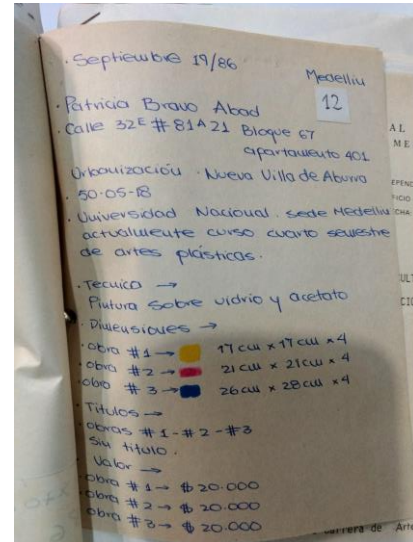 · Septiembre 19/86
Medellin
12
· Patricia Bravo Abad
· Calle 32E # 81A 21 Bloque 67
apartamento 401
Urbanización · Nueva Villa de Aburra
· 50·05·18
· Universidad Nacional. sede Medellin
actualmente curso cuarto semestre
de artes plásticas.
· Tecnica →
Pintura sobre vidrio y acetato
· Dimensiones →
· obra #1 → 17 cm x 17 cm x 4
· obra #2 → 21 cm x 21 cm x 4
· obra #3 → 26 cm x 28 cm x 4
· Titulos →
· obras #1 - #2 - #3
sin titulo.
· Valor →
· obra #1 → $ 20.000
· obra #2 → $ 20.000
· obra #3 → $ 20.000
AL
ME
carrera de Arte